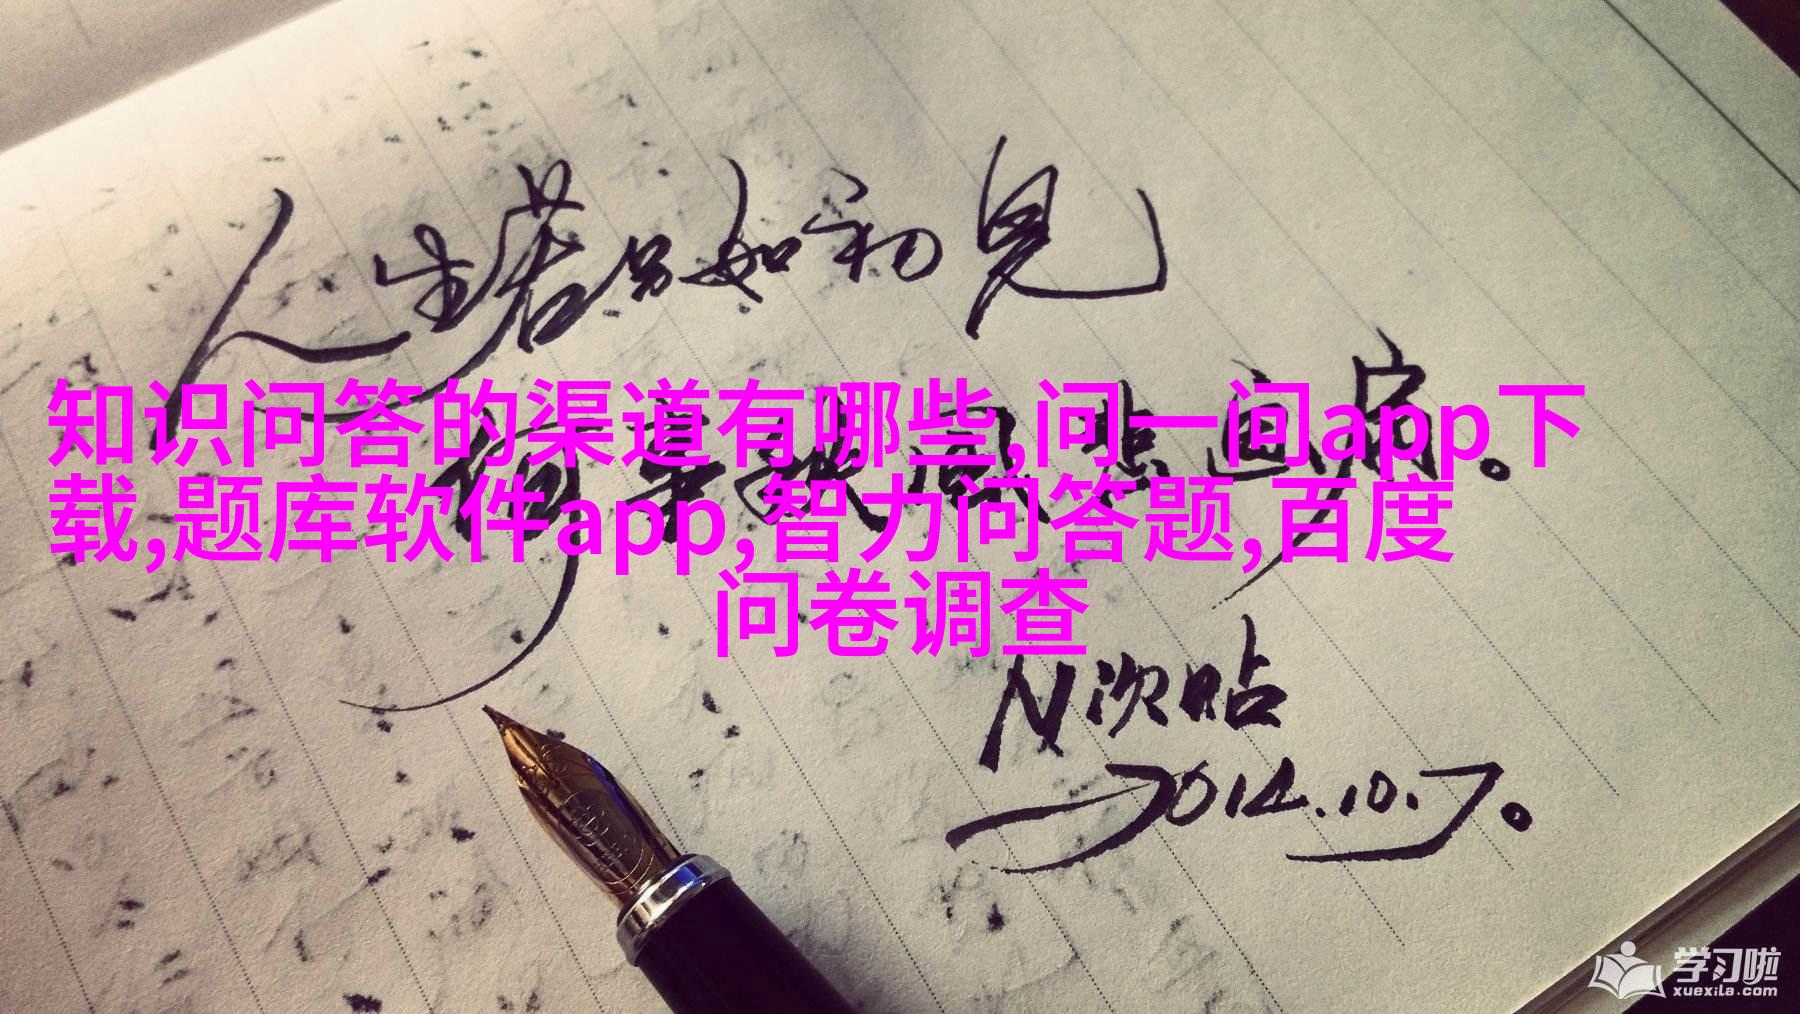 人生若只如初见
何事秋风悲画扇。
知识问答的渠道有哪些,问一问app下
载,题库软件app,智力问答题,百度
问卷调查
N次贴
2014.10.7。
学习啦
xuexila.com